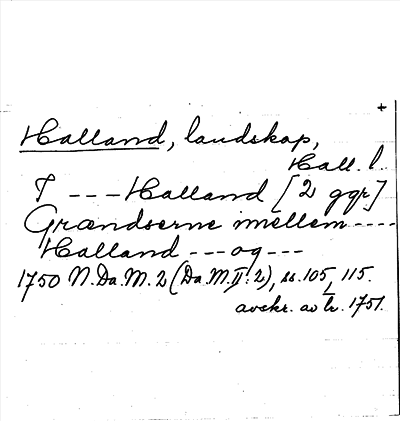 +
Halland, landskap,
Hall. l.
I --- Halland [2 ggr]
Grændserne imellem ----
Halland --- og ---
1750 N.Da.M. 2 (Da.M. II: 2), ss. 105, 115.
avskr. av tr. 1751.